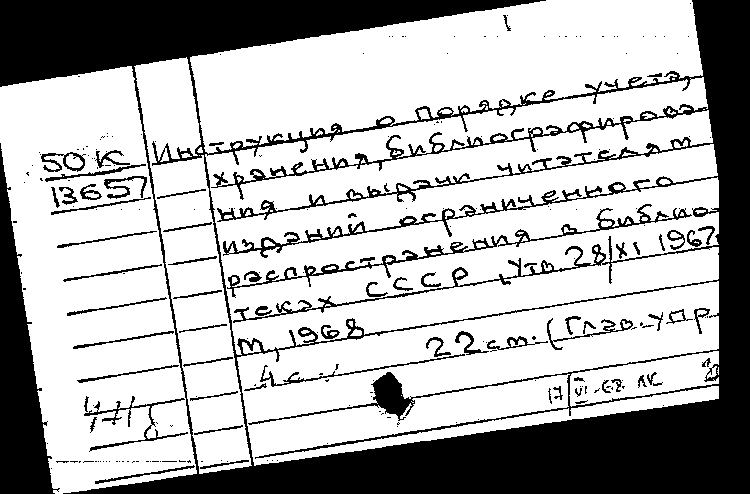 50К
13657
Инструкция о порядке учета,
хранения, библиографирова
ния и выдачи читателям
изданий ограниченного
распространения в библио-
теках СССР, Утв. 28/XI 1967г.
М., 1968.
4 с. 22 см. (Глав. упр
17/VI-68 ЛК